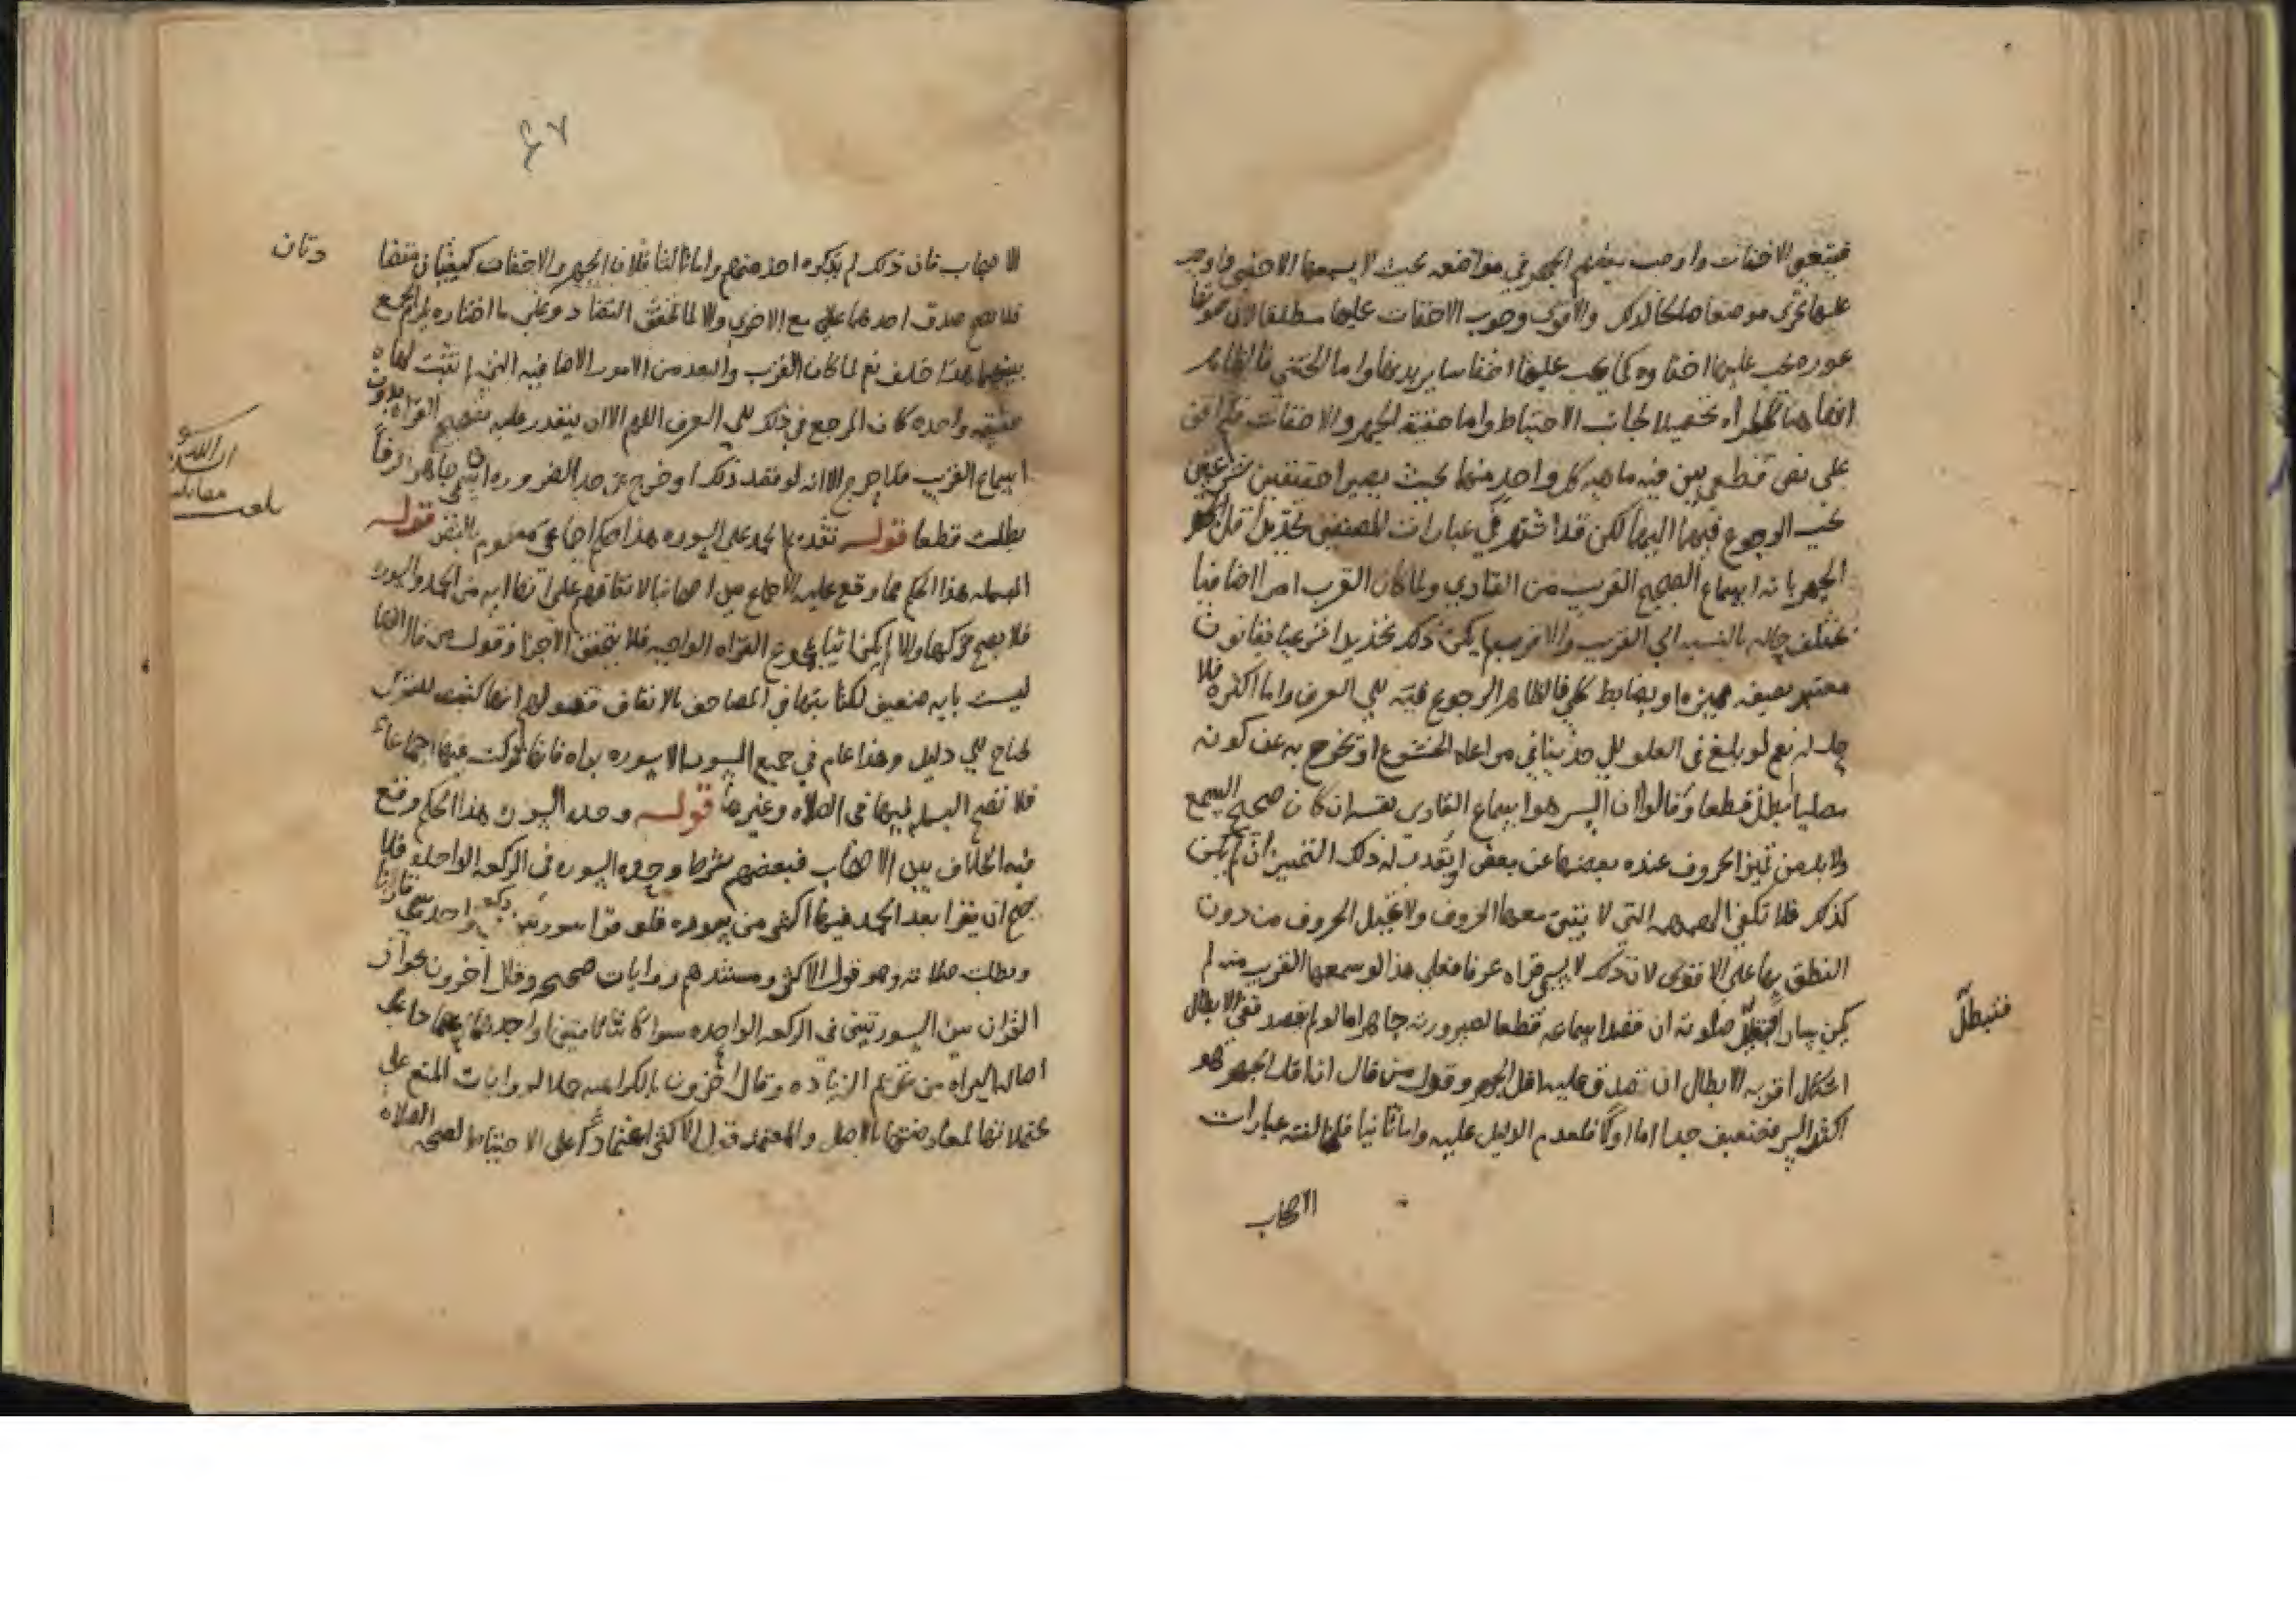 فيتبعو الاخفات واوجب بعضهم الجهر في مواضعه بحيث لا يسمعها الاجنبي واوجب
عليها تحري موضعا صالحا لذلك والاقوى وجوب الاخفات عليها مطلقا لان صوتها
عوره يجب عليها اخفاوه كما يجب عليها اخفا ساير بدنها واما الخنثى فالظاهر
انها هنا كالمراه تحصيلا لجانب الاحتياط واما حقيقة الجهر والاخفات فلم اقف
على نص قطعي بين فيه ماهيه كل واحد منهما بحيث يصيرا حقيقتين شرعيتين
يجب الرجوع فيهما اليهما لكن قد اشتهر في عبارات المصنفين تحديد اقل
الجهر بانه اسماع الصحيح القريب من القاري ولما كان القرب امرا اضافيا
تختلف حاله بالنسبه الى القريب والاقرب لم يكن ذلك تحديدا شرعيا بقانون
معتبر بصيغه مميزه او بضابط كلي فالظاهر الرجوع فيه الى العرف واما اكثره فلا
حد له نعم لو بلغ في العلو الى حد ينافي مراعاه الخشوع او يخرج به عن كونه
مصليا ابطل قطعا وقالوا ان السر هو اسماع القاري نفسه ان كان صحيح السمع
ولا بد من تميز الحروف عنده بعضها عن بعض او يقدر له ذلك التمييز ان لم يكن
كذلك فلا تكفي الهمهمه التي لا يتبين معها الحروف ولا تخيل الحروف من دون
النطق بها على الاقوى لان ذلك لا يسمى قراه عرفا فعلى هذا لو سمعها القريب منه لم
يكن سارا فتبطل صلوته ان قصد اسماعه قطعا لصيرورته جاهرا اما لو لم يقصد ففي الابطال
فتبطل
اشكال اقربه الابطال ان صدق عليه اقل الجهر وقول من قال ان اقل الجهر هو
اكثر السر فضعيف جدا اما اولا فلعدم الدليل عليه واما ثانيا فلمخالفته عبارات
الاصحاب
٤٧
الاصحاب فان ذلك لم يذكره احد منهم واما ثالثا فلان الجهر والاخفات كيفيتان متضا
دتان
فلا يصح صدق احدهما على مع الاخرى والا لما تحقق التضاد وعلى ما اختاره يلزم الجمع
بينهما هذا خلف نعم لما كان القرب والبعد من الامور الاضافيه التي لم تثبت لها
حقيقه واحده كان المرجع في ذلك الى العرف اللهم الا ان يتعذر عليه تصحيح القراه بدون
اسماع القريب فلا حرج الا انه لو قصد ذلك او خرج عن حد الضروره الى ان يسمى جاهرا عرفا
بطلت قطعا قوله تقديم الحمد على السوره هذا حكم اجماعي معلوم بالنص قوله
البسمله هذا الحكم مما وقع عليه الاجماع من اصحابنا لاتفاقهم على انها ايه من الحمد والسوره
فلا يصح تركها والا لم يكن اتيا بمجموع القراه الواجبه فلا يتحقق الاجزا وقول من قال انها
ليست بايه ضعيف لكتابتها في المصاحف بالاتفاق فقوله انها كتبت للتبرك
يحتاج الى دليل وهذا عام في جميع السور الا سوره براه فانها تركت فيها اجماعا
فلا تصح البسمله فيها في الصلاه وغيرها قوله وحده السوره هذا الحكم وقع
فيه الخلاف بين الاصحاب فبعضهم شرط وحده السوره في الركعه الواحده فلا
يصح ان يقرا بعد الحمد فيها اكثر من سوره فلو قرا سورتين في ركعه واحده سمي قارنا
وبطلت صلاته وهو قول الاكثر ومستندهم روايات صحيحه وقال اخرون بجواز
القران بين السورتين في الركعه الواحده سوا كانتا تامتين او احدهما بعضها بنا على
اصاله البراه من تحريم الزياده وقال اخرون بالكراهيه حملا لروايات المنع على
محتملاتها لمعارضتها بالاصل والمعتمد قول الاكثر اعتمادا على الاحتياط لصحه الصلاه